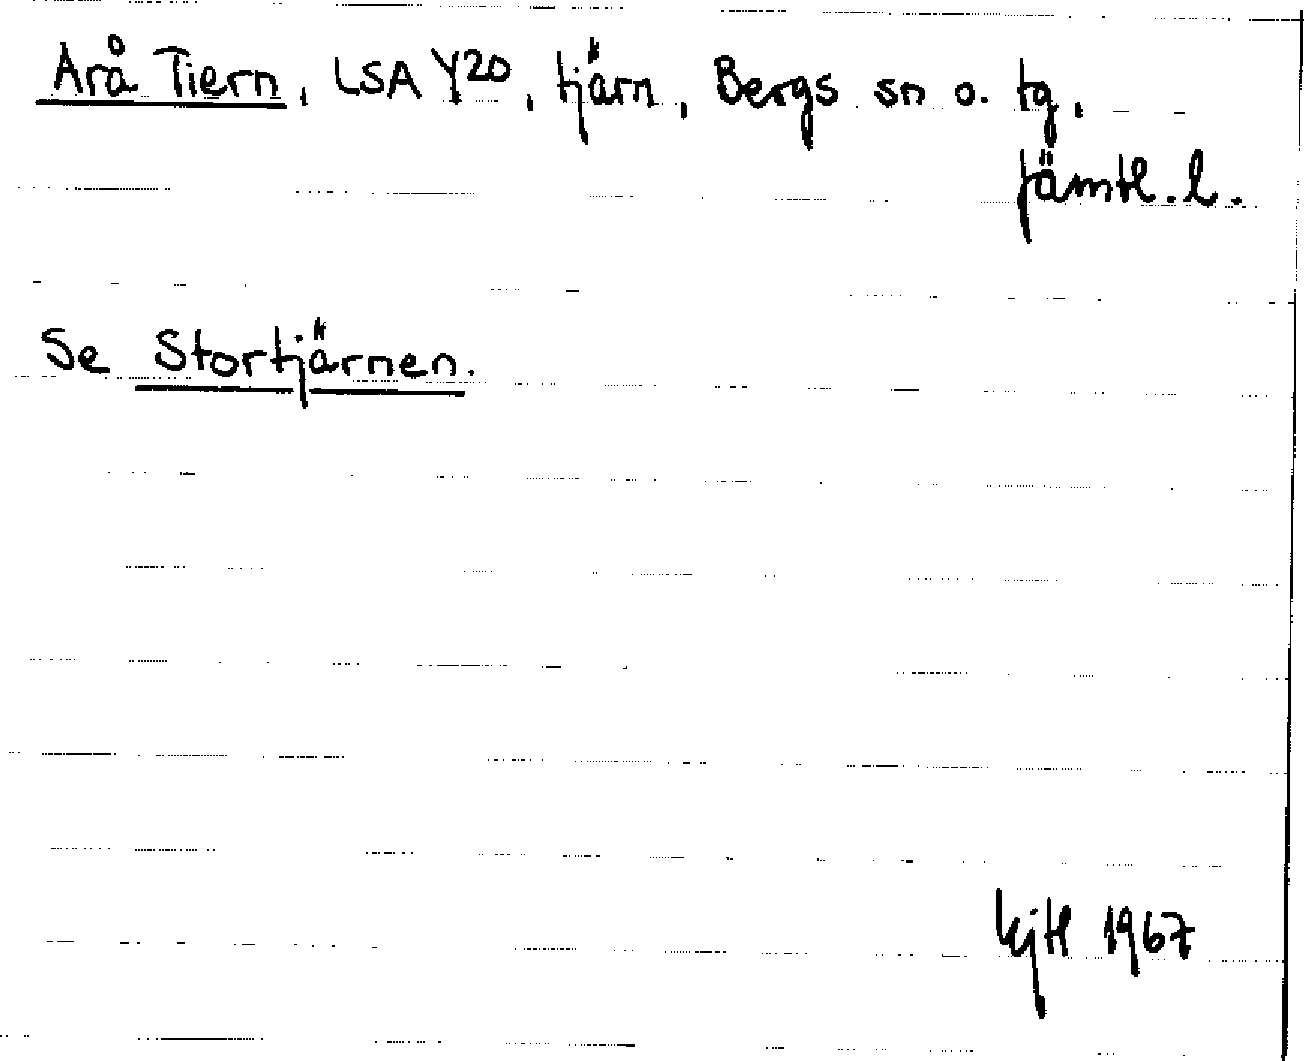 Arå Tiern, LSA Y20, tjärn, Bergs sn o. tg,
Jämtl. l.
Se Stortjärnen.
1967